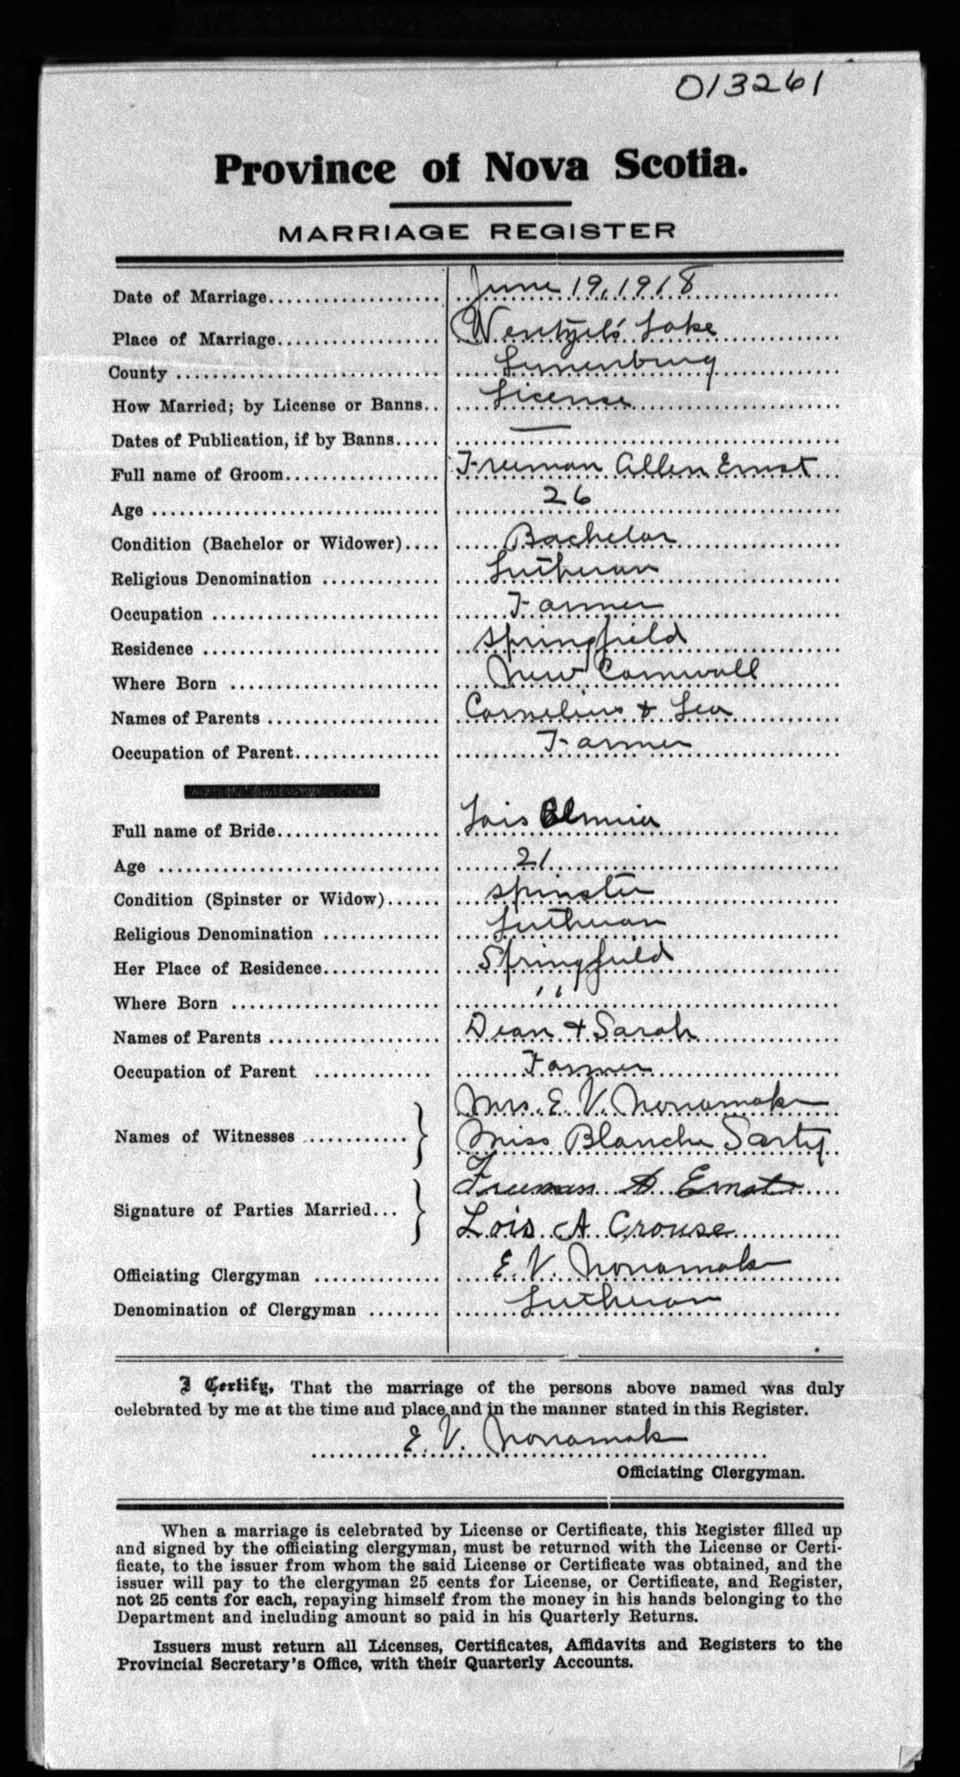 013261
Province of Nova Scotia.
MARRIAGE REGISTER
Date of Marriage.................... June 19, 1918
Place of Marriage................... Wentzel's Lake
County .............................. Lunenburg
How Married; by License or Banns.. License
Dates of Publication, if by Banns..... —
Full name of Groom.................. Freeman Allen Ernst
Age ................................. 26
Condition (Bachelor or Widower).... Bachelor
Religious Denomination ............. Lutheran
Occupation .......................... Farmer
Residence ........................... Springfield
Where Born ......................... New Cornwall
Names of Parents ................... Cornelius & Lea
Occupation of Parent................ Farmer
Full name of Bride.................. Lois
Age ................................. 21
Condition (Spinster or Widow)...... Spinster
Religious Denomination ............. Lutheran
Her Place of Residence............. Springfield
Where Born ......................... "
Names of Parents ................... Dean & Sarah
Occupation of Parent ............. Farmer
Mrs. E. V. Nonamaker
Names of Witnesses ............ } Miss Blanche Sarty
Freeman A Ernst
Signature of Parties Married... } Lois A Crouse
Officiating Clergyman .............. E. V. Nonamaker
Denomination of Clergyman ........ Lutheran
I Certify, That the marriage of the persons above named was duly
celebrated by me at the time and place and in the manner stated in this Register.
E. V. Nonamaker
Officiating Clergyman.
When a marriage is celebrated by License or Certificate, this Register filled up
and signed by the officiating clergyman, must be returned with the License or Certi-
ficate, to the issuer from whom the said License or Certificate was obtained, and the
issuer will pay to the clergyman 25 cents for License, or Certificate, and Register,
not 25 cents for each, repaying himself from the money in his hands belonging to the
Department and including amount so paid in his Quarterly Returns.
Issuers must return all Licenses, Certificates, Affidavits and Registers to the
Provincial Secretary's Office, with their Quarterly Accounts.